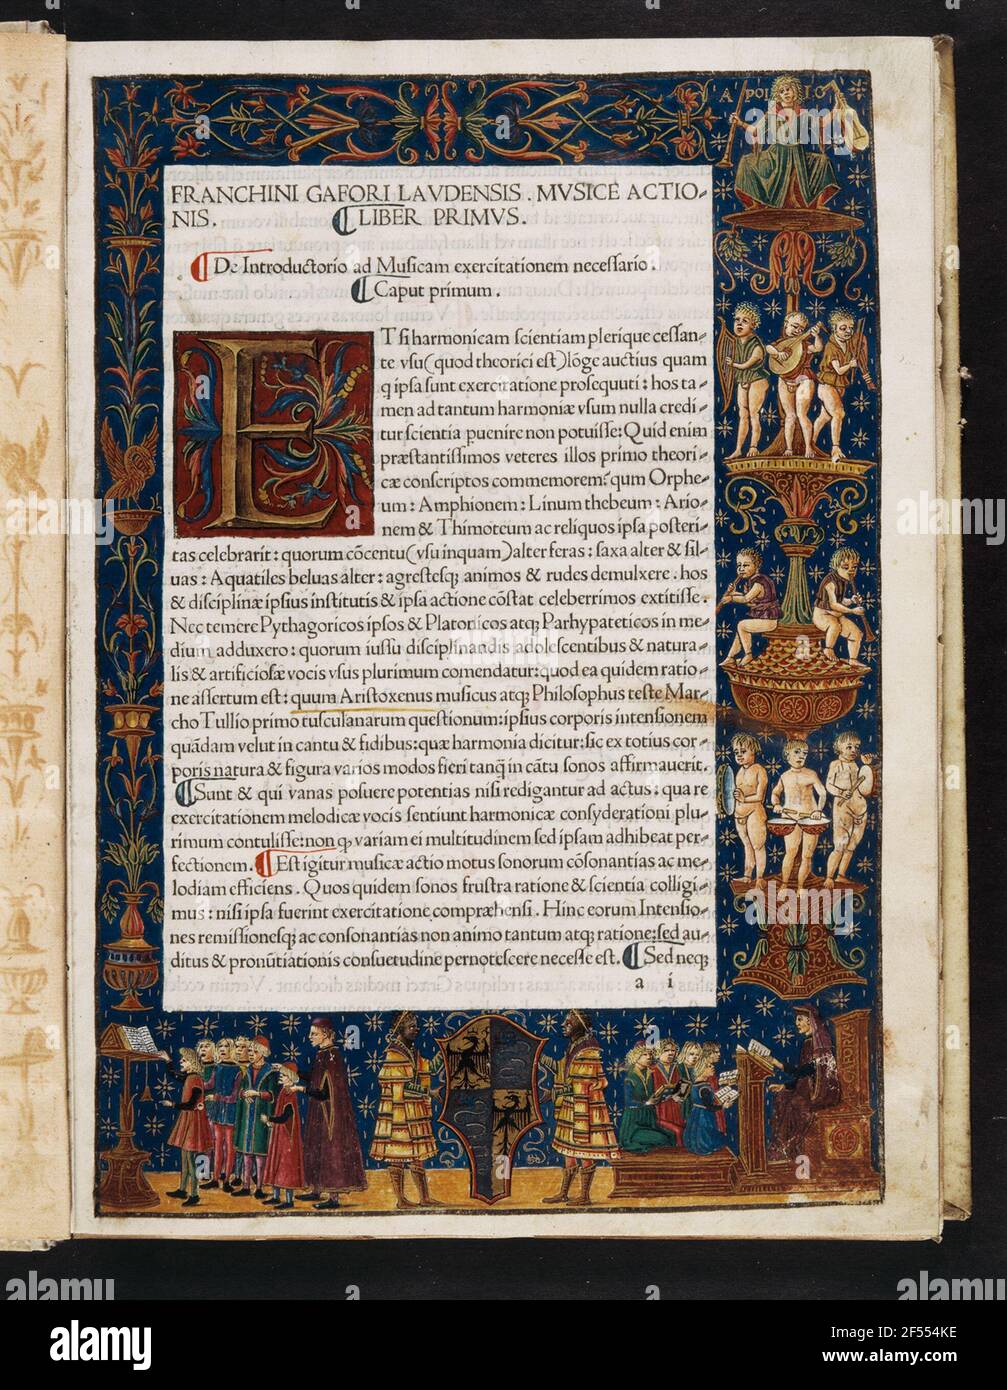 APOLLO
FRANCHINI GAFORI LAVDENSIS . MVSICE ACTIO-
NIS. ¶LIBER PRIMVS.
¶De Introductorio ad Musicam exercitationem necessario.
¶Caput primum.
ETsi harmonicam scientiam plerique cessan-
te vsu(quod theorici est)lõge auctius quam
q ipsa sunt exercitatione prosequuti: hos ta-
men ad tantum harmoniæ vsum nulla credi-
tur scientia puenire non potuisse: Quid enim
præstantissimos veteres illos primo theori-
cæ conscriptos commemorem: qum Orphe-
um: Amphionem: Linum thebeum: Ario-
nem & Thimoteum ac reliquos ipsa posteri-
tas celebrarit: quorum cõcentu(vsu inquam)alter feras: saxa alter & sil-
uas: Aquatiles beluas alter: agrestesq; animos & rudes demulxere. hos
& disciplinæ ipsius institutis & ipsa actione cõstat celeberrimos extitisse.
Nec temere Pythagoricos ipsos & Platonicos atq; Parhypateticos in me-
dium adduxero: quorum iussu disciplinandis adolescentibus & natura-
lis & artificiosæ vocis vsus plurimum comendatur: quod ea quidem ratio-
ne assertum est: quum Aristoxenus musicus atq; Philosophus teste Mar-
cho Tullio primo tusculanarum questionum: ipsius corporis intensionem
quãdam velut in cantu & fidibus: quæ harmonia dicitur: sic ex totius cor-
poris natura & figura varios modos fieri tanq̃ in cãtu sonos affirmauerit.
¶Sunt & qui vanas posuere potentias nisi redigantur ad actus: qua re
exercitationem melodicæ vocis sentiunt harmonicæ consyderationi plu-
rimum contulisse: non q variam ei multitudinem sed ipsam adhibeat per-
fectionem. ¶Est igitur musicæ actio motus sonorum cõsonantias ac me-
lodiam efficiens. Quos quidem sonos frustra ratione & scientia colligi-
mus: nisi ipsa fuerint exercitatione compræhensi. Hinc eorum Intensio-
nes remissionesq; ac consonantias non animo tantum atq; ratione: sed au-
ditus & pronũtiationis consuetudine pernotescere necesse est. ¶Sed neq;
a i
alamy
Image ID: 2F554KE
www.alamy.com